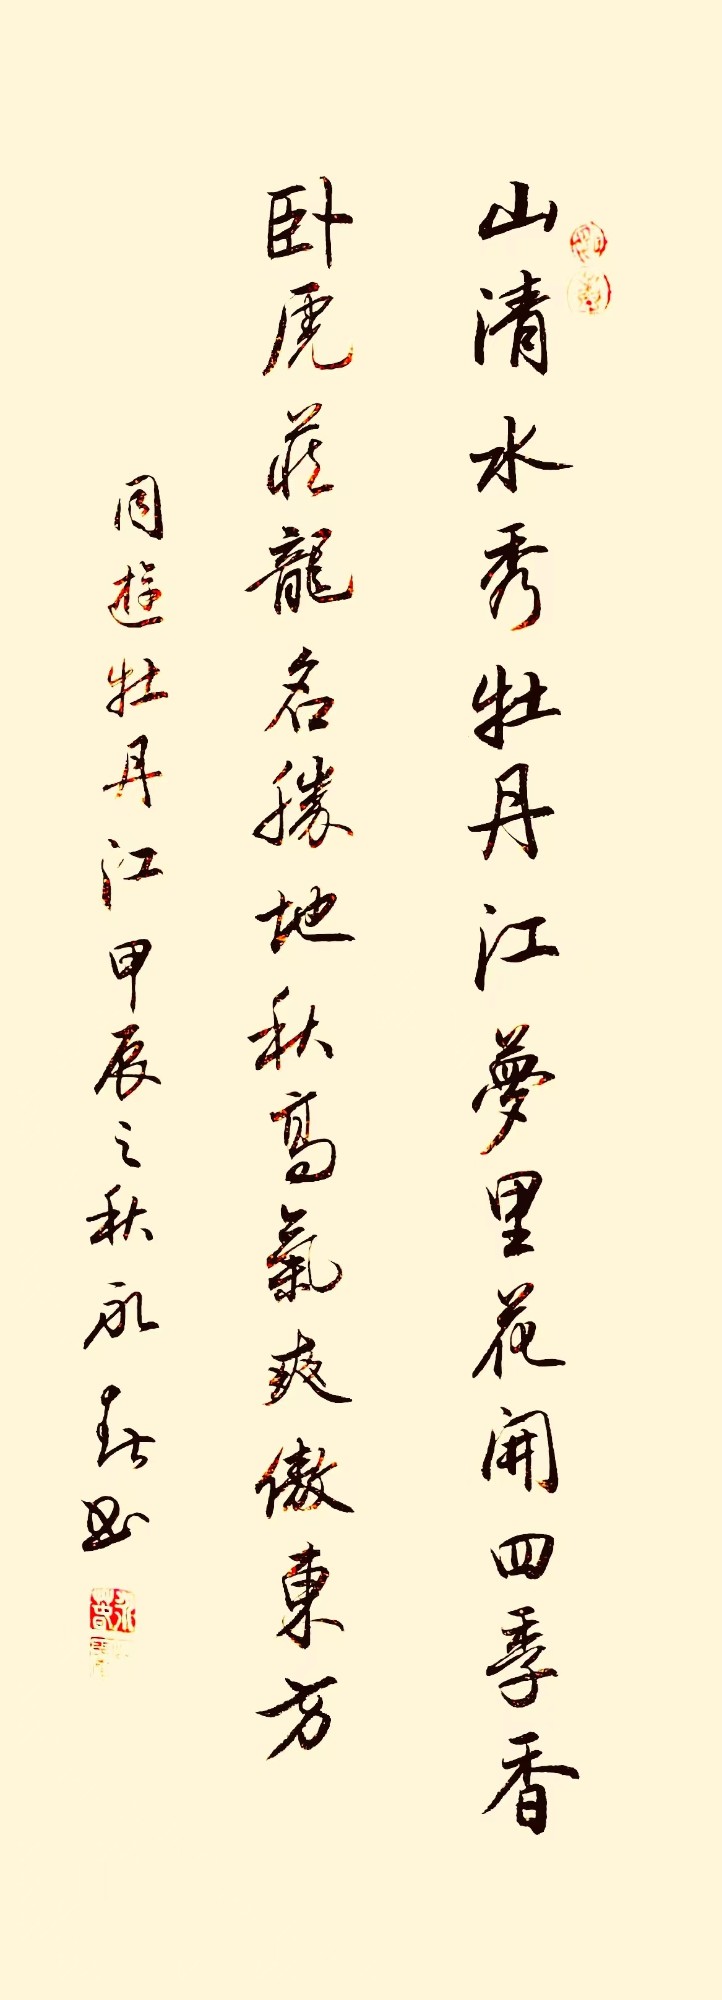 山清水秀牡丹江夢里花開四季香
卧虎藏龍名勝地秋高氣爽傲東方
同遊牡丹江甲辰之秋永春书